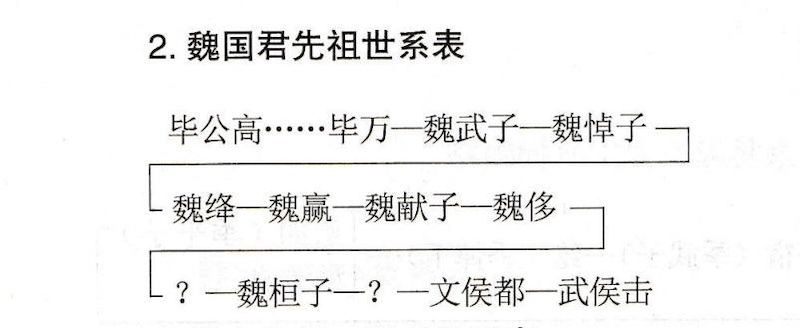 2. 魏国君先祖世系表
毕公高……毕万—魏武子—魏悼子
魏绛—魏赢—魏献子—魏侈
？—魏桓子—？—文侯都—武侯击